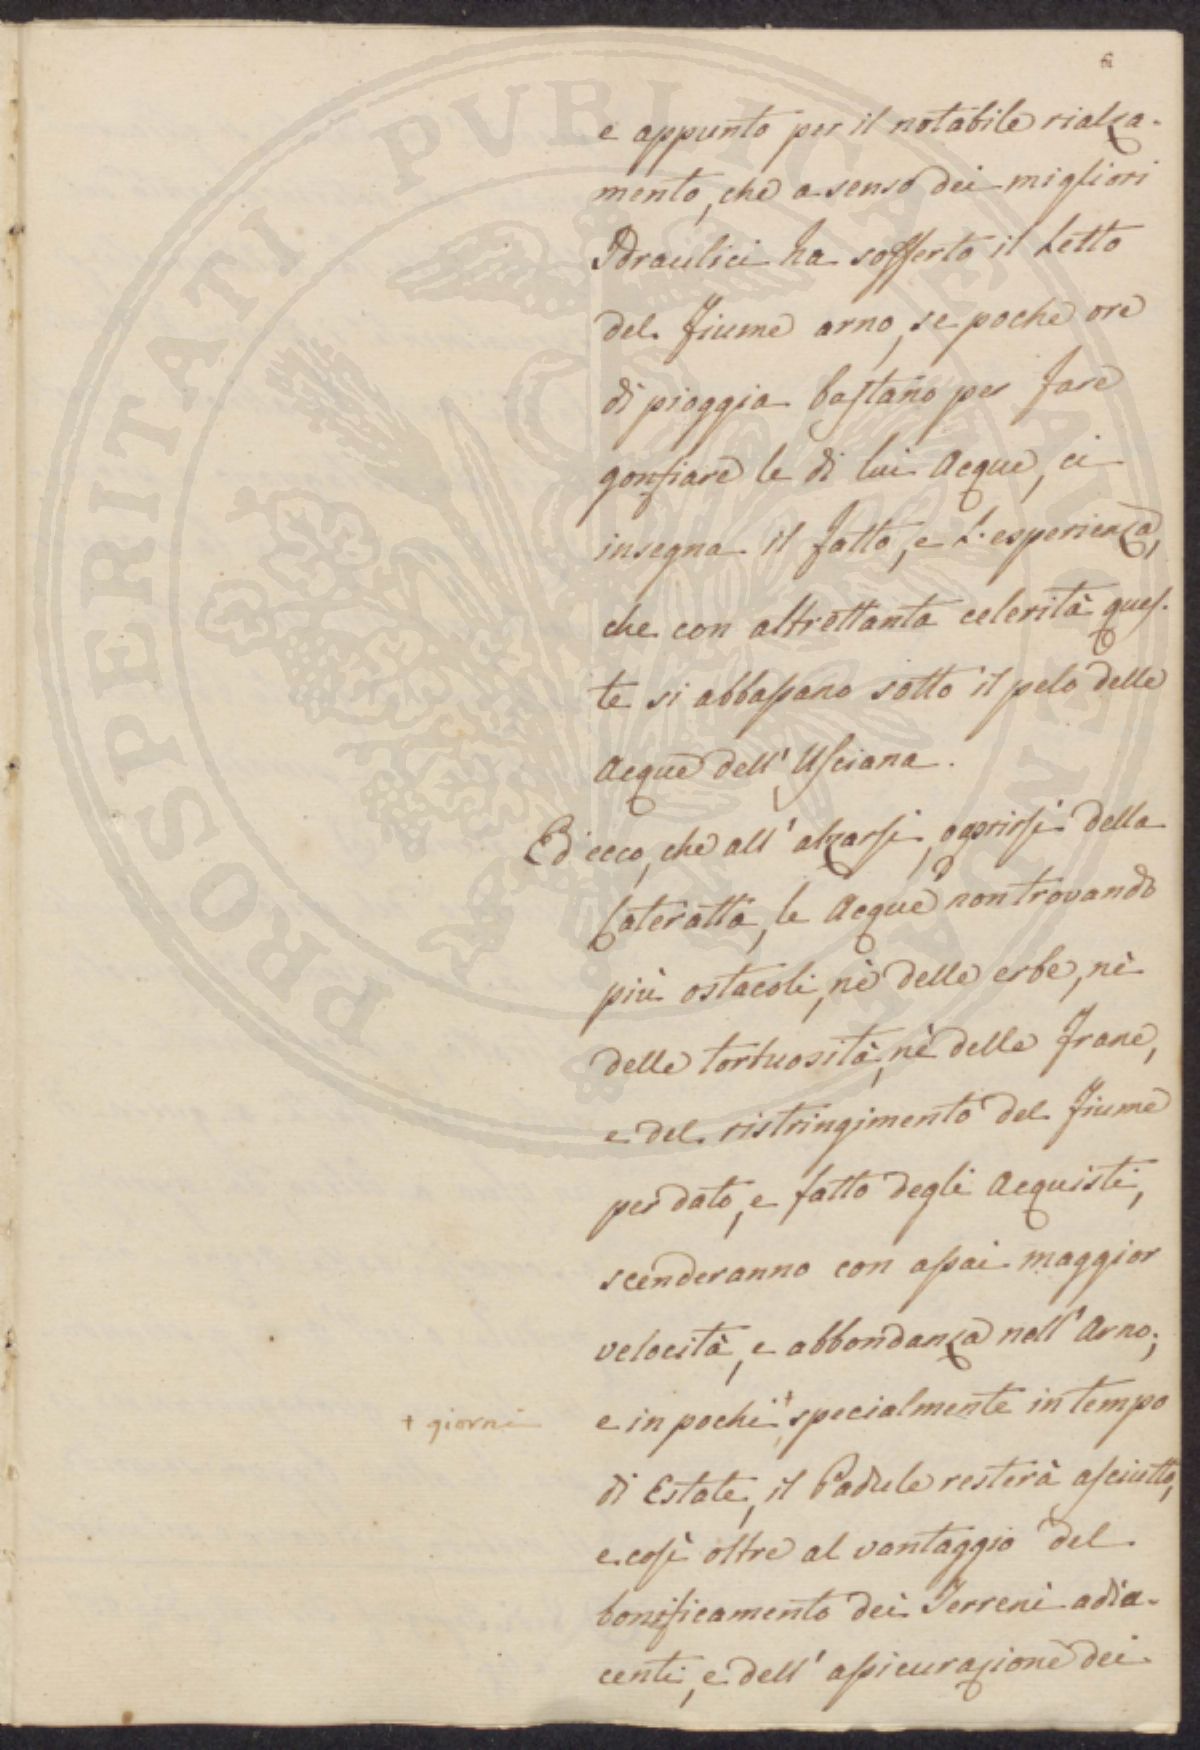 6
e appunto per il notabile rialza-
mento, che a senso dei migliori
Idraulici ha sofferto il Letto
del fiume arno, se poche ore
di pioggia bastano per fare
gonfiare le di lui Acque, ci
insegna il fatto, e L'esperienza,
che con altrettanta celerità ques-
te si abbassano sotto il pelo delle
Acque dell'Usciana.
Ed ecco, che all'alzarsi, o aprirsi della
Cateratta, le Acque non trovando
più ostacoli, nè delle erbe, nè
delle tortuosità, nè delle frane,
e del ristringimento del fiume
per dato, e fatto degli Acquisti,
scenderanno con assai maggior
velocità, e abbondanza nell'Arno;
e in pochi + specialmente in tempo
+ giorni
di Estate, il Padule resterà asciutto,
e così oltre al vantaggio del
bonificamento dei Terreni adia-
centi, e dell'assicurazione dei
PROSPERITATI PUBLICAE AUGENDAE